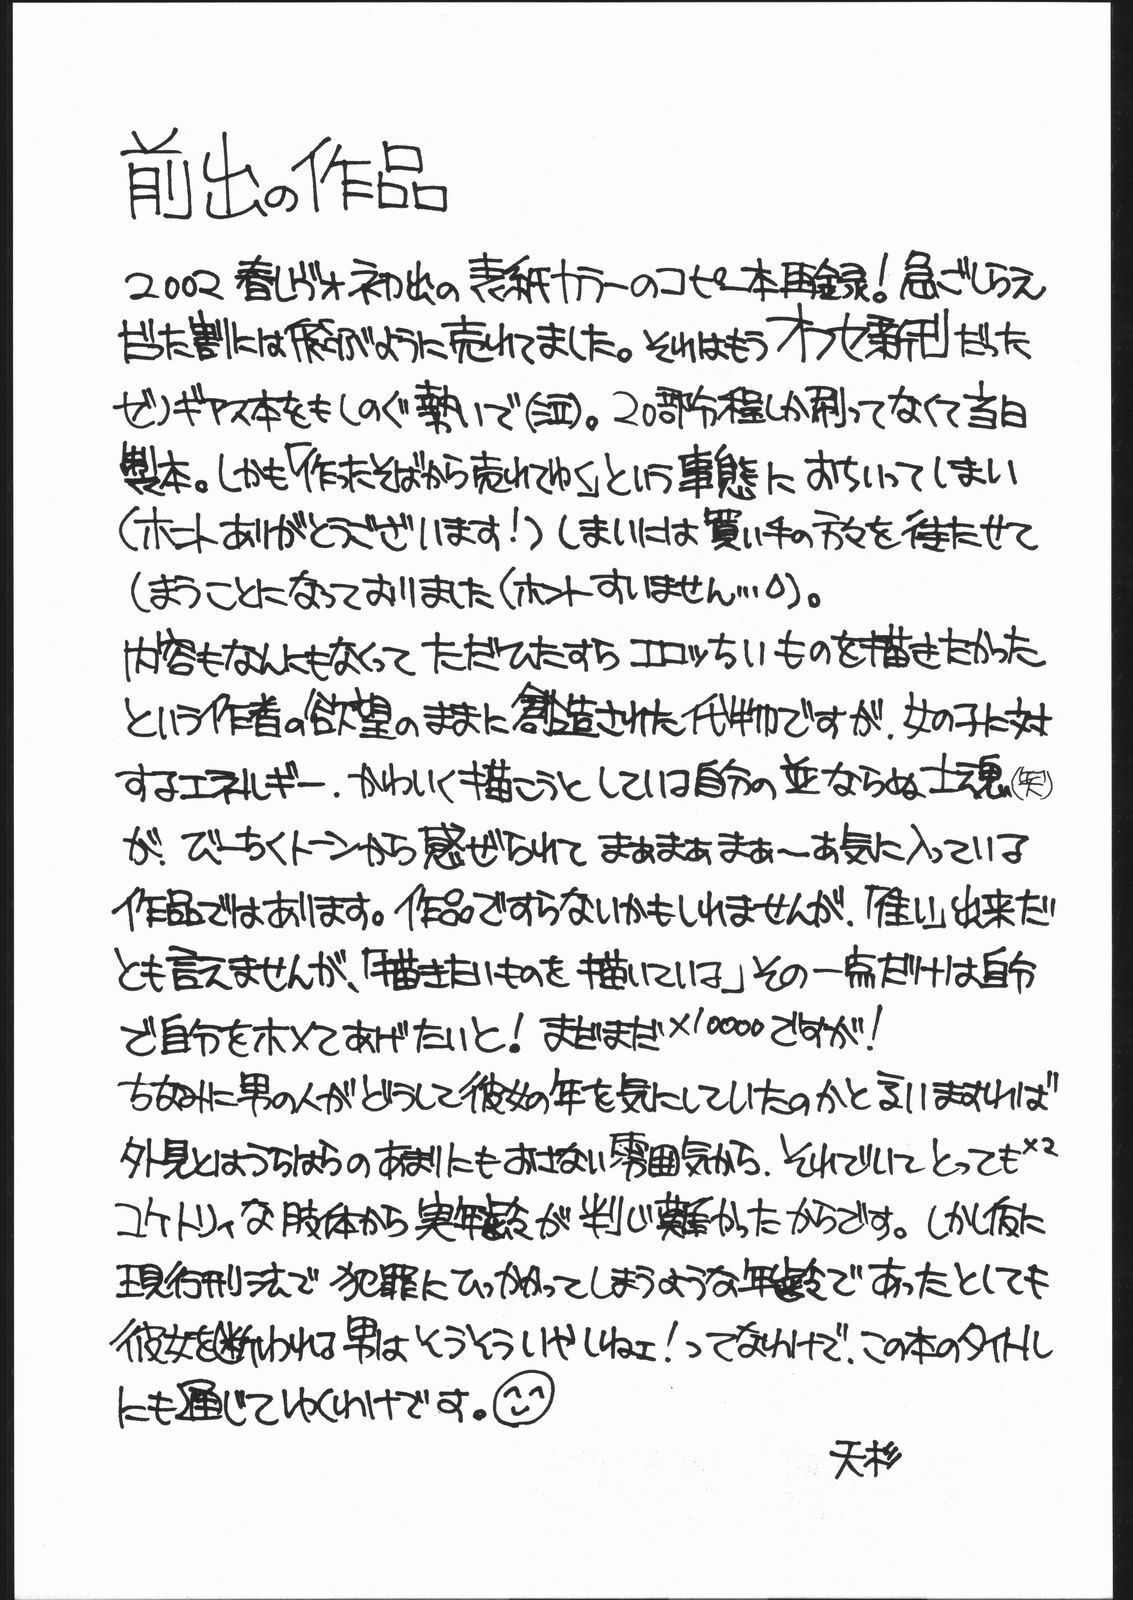 前出の作品
2002 春レヴォ初出の表紙カラーのコピー本再録!急ごしらえ
だった割には飛ぶように売れてました。それはもうオフセ新刊だった
ゼノギアス本をもしのぐ勢いで(泣)。20部分程しか刷ってなくて当日
製本。しかも「作ったそばから売れてゆく」という事態におちいってしまい
(ホントありがとうございます!)しまいには買い手の方々を待たせて
しまうことになっておりました(ホントすいません…)。
内容もなんにもなくってただひたすらエロっちいものを描きたかった
という作者の欲望のままに創造された代物ですが、女の子に対
するエネルギー、かわいく描こうとしている自分の並ならぬ士魂(笑)
が、びーちくトーンから感ぜられてまぁまぁまぁ〜お気に入っている
作品ではあります。作品ですらないかもしれませんが、「佳い」出来だ
とも言えませんが、「描きたいものを描いている」その一点だけは自分
で自分をホメてあげたいと!まだまだ×10000ですが!
ちなみに男の人がどうして彼女の年を気にしていたのかと言いますれば
外見とはうらはらのあまりにもおさない雰囲気から、それでいてとっても×2
コケトリィな肢体から実年齢が判じ難かったからです。しかし仮に
現行刑法で犯罪にひっかかってしまうような年齢であったとしても
彼女を断われる男はそうそういやしねェ!ってなわけで、この本のタイトル
にも通じてゆくわけです。
天杉